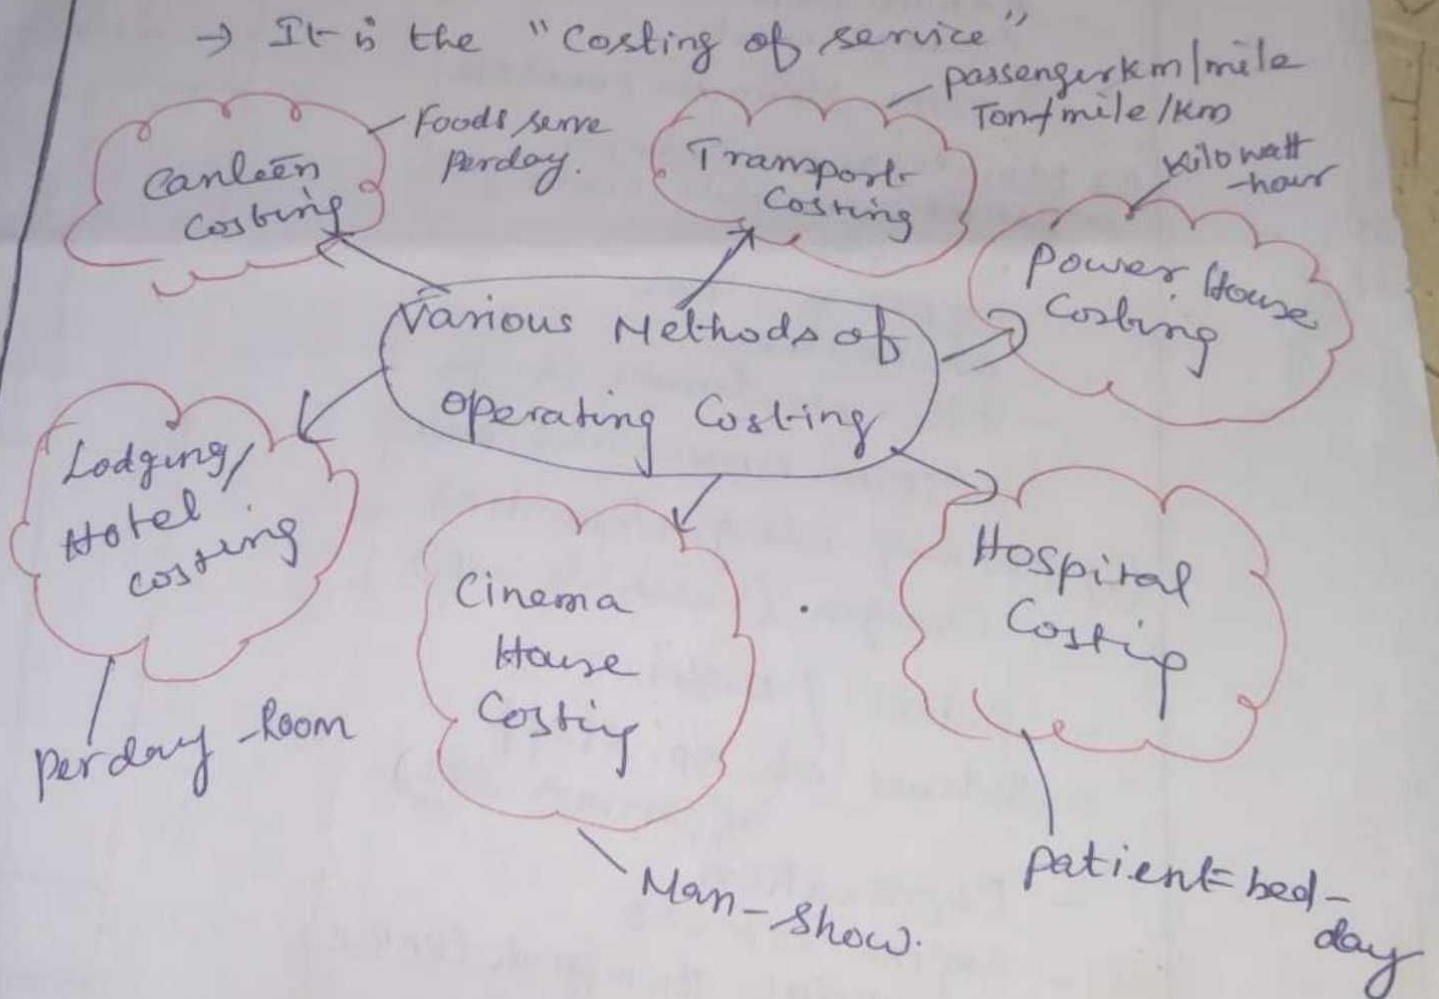 → It is the "Costing of service"
Canteen
Costing
Foods serve
perday.
Transport
Costing
passengerkm/mile
Ton/mile/km
Power House
Costing
Kilowatt
-hour
Various Methods of
Operating Costing
Lodging/
Hotel
costing
perday-Room
Cinema
House
Costing
Man-show.
Hospital
Costing
patient=bed-
day